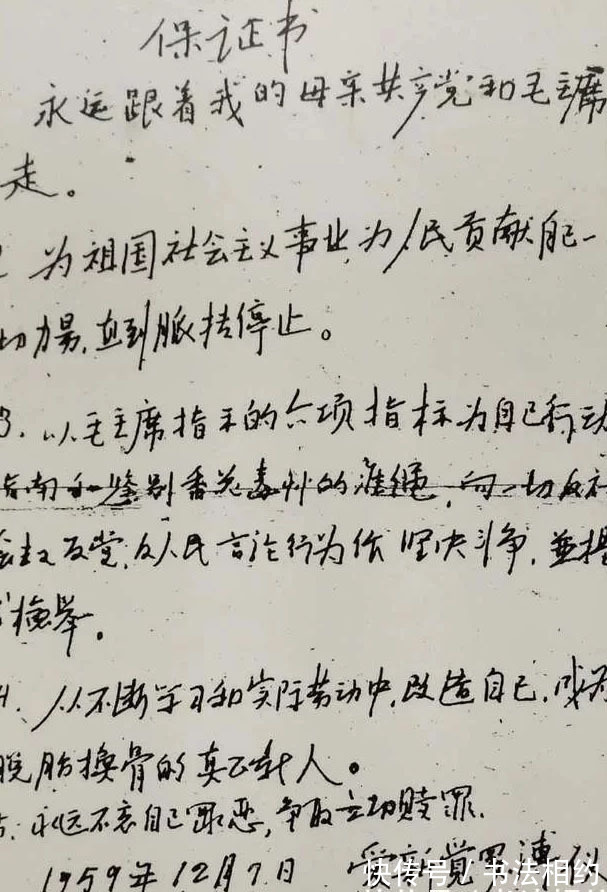 保证书
永远跟着我的母亲共产党和毛主席
走。
为祖国社会主义事业,为人民贡献自己一
切力量,直到脉搏停止。
3. 以毛主席指示的六项指标为自己行动
指南和鉴别香花毒草的准绳,向一切反社
会主义反党,反人民言论行为作坚决斗争,并提
检举。
4、从不断学习和实际劳动中,改造自己,成为
脱胎换骨的真正新人。
永远不忘自己罪恶,争取立功赎罪.
1959年12月7日
快传号/书法相约